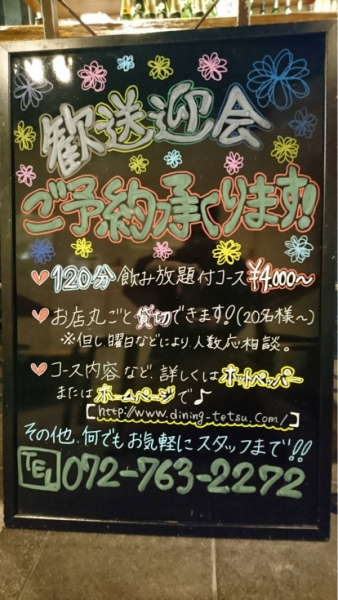 歓送迎会
ご予約承ります!
♡120分飲み放題付コース¥4,000〜
♡お店丸ごと貸切できます!(20名様〜)
※但し、曜日などにより人数応相談。
♡コース内容など、詳しくはホットペッパー
またはホームページで♪
[http://www.dining-tetsu.com/]
その他、何でもお気軽にスタッフまで!!
TEL 072-763-2272